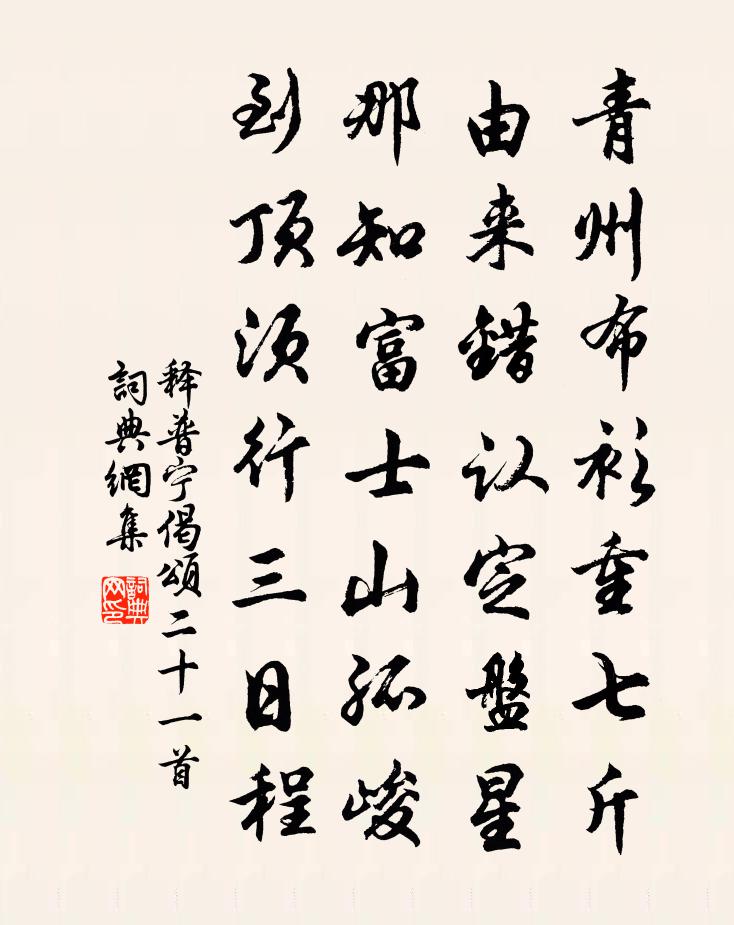 青州布衫重七斤
由来錯认定盤星
那知富士山孤峻
到顶须行三日程
释普宁偈頌二十一首
詞典網集
詞典网印